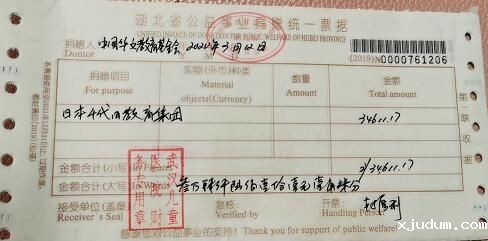 湖北省公益事业捐赠统一票据
UNIFIED INVOICE OF DONATION FOR PUBLIC WELFARE OF HUBEI PROVINCE
捐赠人 中国华文教育基金会 2020年3月12日
Dontor
(2019) No 0000761206
捐赠项目 实物(外币)种类 数量 金额
For purpose Material objects(Currency) Amount Total amount
日本千代田教育集团 34611.17
金额合计(小写) In Figures 34611.17
金额合计(大写) In Words 叁万肆仟陆佰壹拾壹元壹角柒分
接受单位(盖章) 复核: 开票:
Receiver's Seal Verified by Handling Person
感谢您对公益事业的支持! Thank you for support of public welfare
武汉儿童
医院财
务专用章
第一联收据
xjudum.com